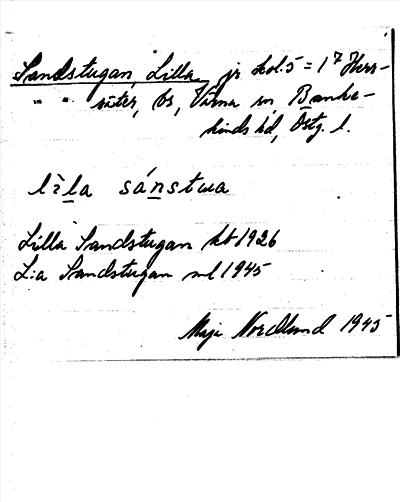 Sandstugan, Lilla jr kol. 5 = 1 7 Herr-
" " säter, bs, Vårna sn, Banke-
kinds hd, Östg. l.
lìla sánstua
Lilla Sandstugan kb 1926
L:a Sandstugan ml 1945
Maja Nordlund 1945